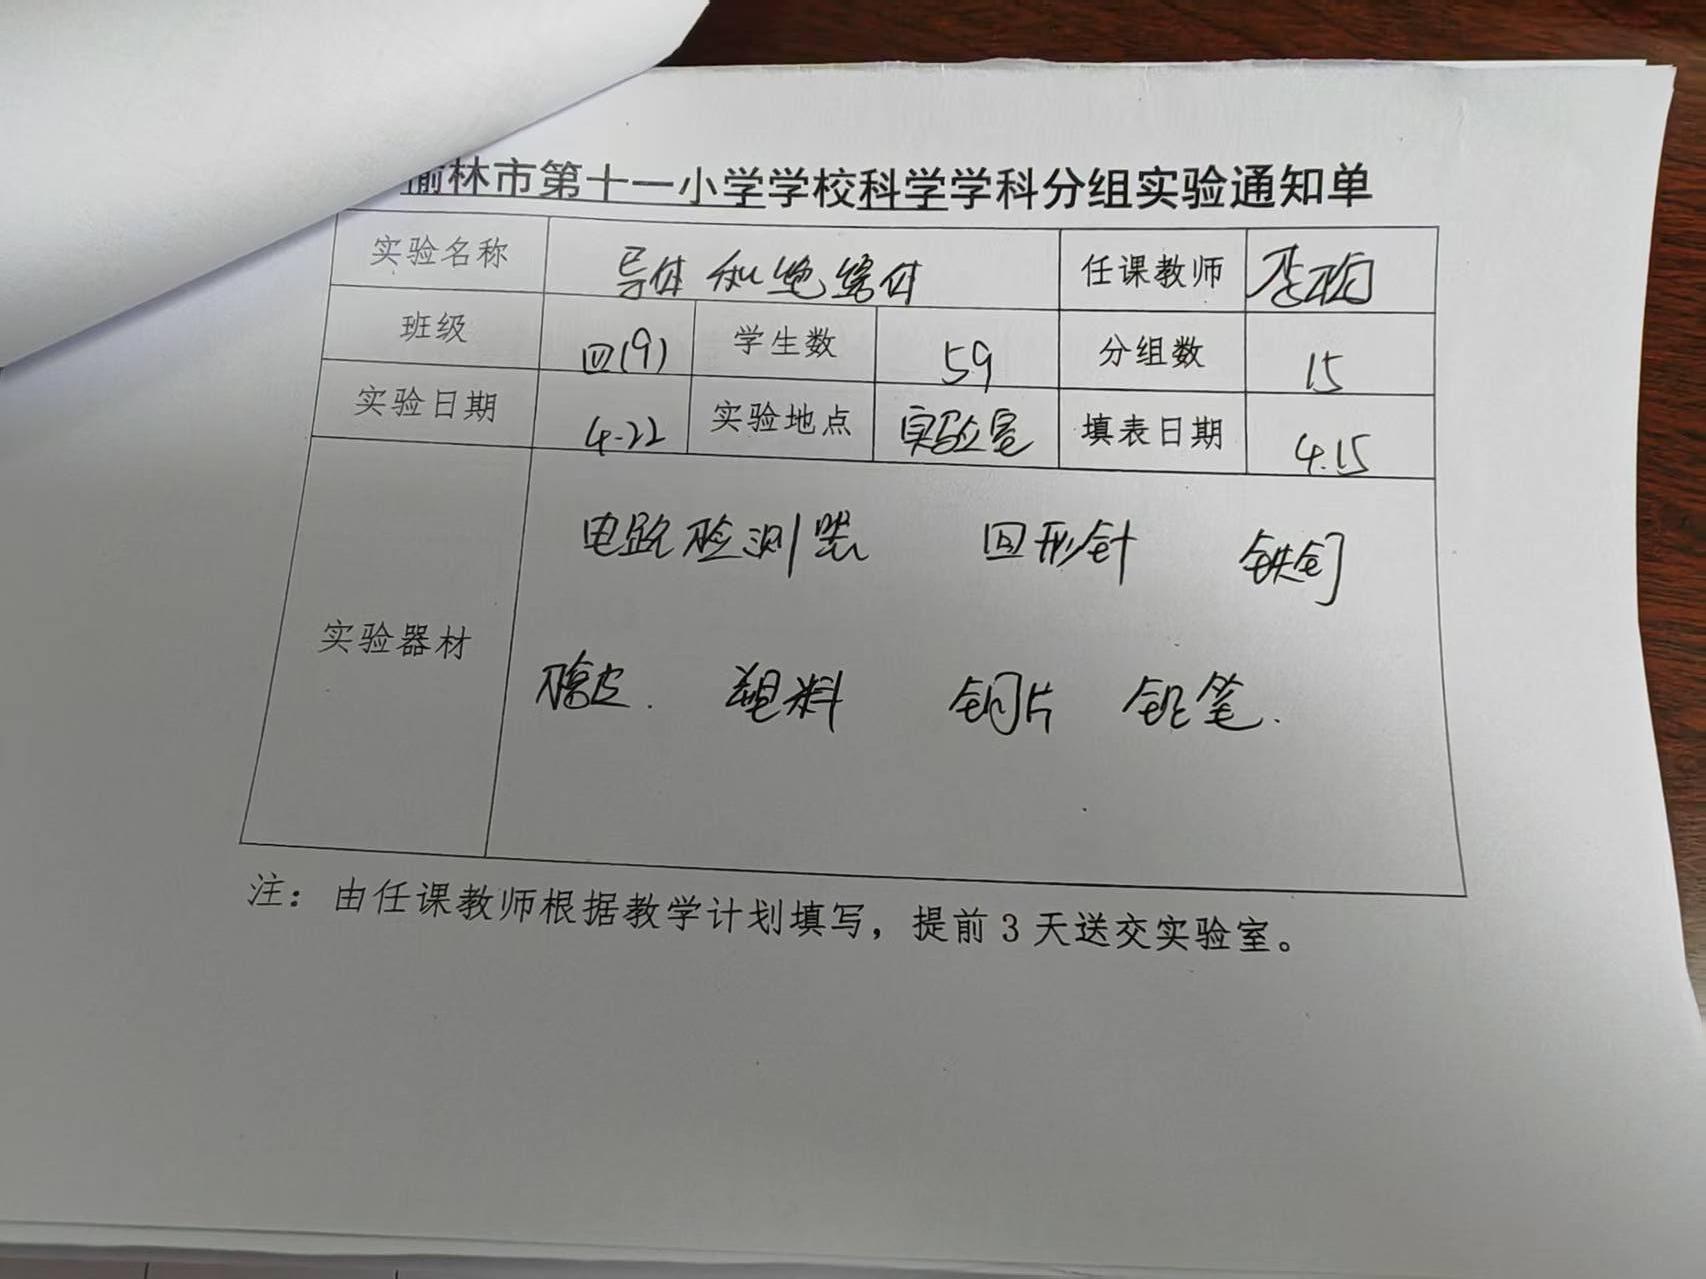 榆林市第十一小学学校科学学科分组实验通知单
实验名称 导体和绝缘体 任课教师
班级 四(9) 学生数 59 分组数 15
实验日期 4.22 实验地点 实验室 填表日期 4.15
实验器材 电路检测器 回形针 铁钉
橡皮. 塑料 铜片 铅笔.
注：由任课教师根据教学计划填写，提前3天送交实验室。